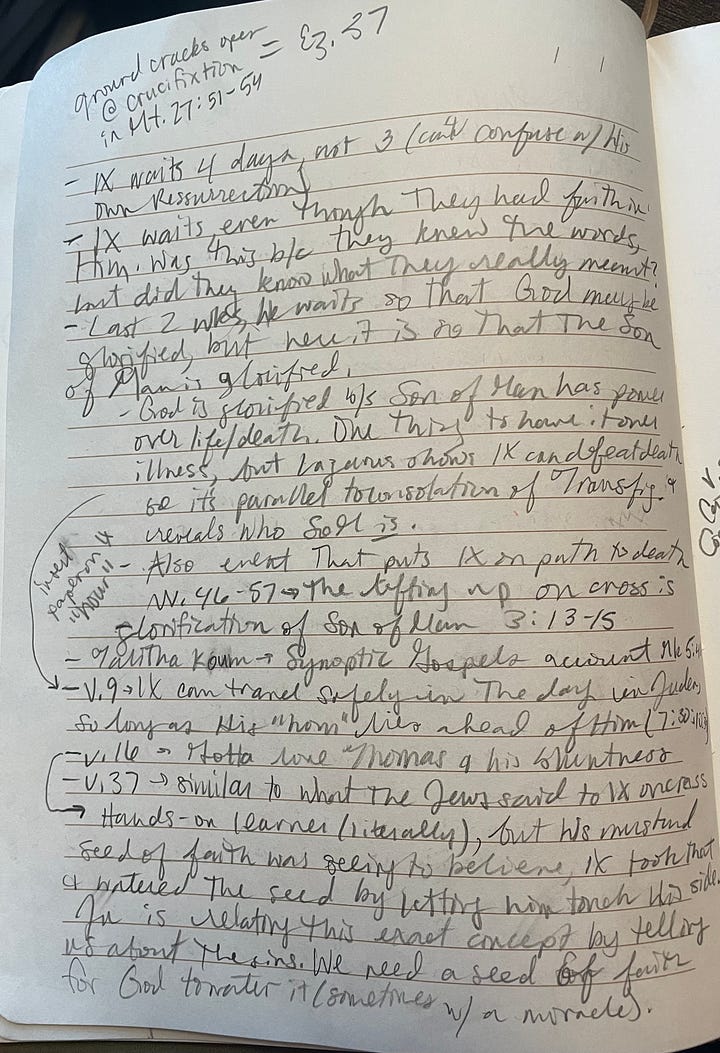 ground cracks open = Ez. 37
@ crucifixtion
in Mt. 27:51-54
- IX waits 4 days, not 3 (can't confuse w/ His
own Ressurrection)
- IX waits even though they had faith in
Him. Was this b/c they knew the words,
but did they know what they really meant?
- Last 2 wks, he waits so that God may be
glorified, but here it is so that The Son
of Man is glorified.
- God is glorified b/c Son of Man has power
over life/death. One thing to have it over
illness, but Lazarus shows IX can defeat death
so it's parallel to consolation of Transfig. &
reveals who SoM is.
insert
paper on
"hour"
- Also event that puts IX on path to death
vv. 46-57 → the lifting up on cross is
glorification of Son of Man 3:13-15
- Talitha Koum → Synoptic Gospels account Mk 5:41
- V. 9 → IX can travel safely in the day in Judea
so long as His "hour" lies ahead of Him (7:30;
- v. 16 → Gotta love Thomas & his bluntness
- v. 37 → similar to what the Jews said to IX on cross
→ Hands-on learner (literally), but his mustard
seed of faith was seeing to believe, IX took that
& watered the seed by letting him touch His side.
Jn is relating this exact concept by telling
us about the sins. We need a seed of faith
for God to water it (sometimes w/ a miracle).